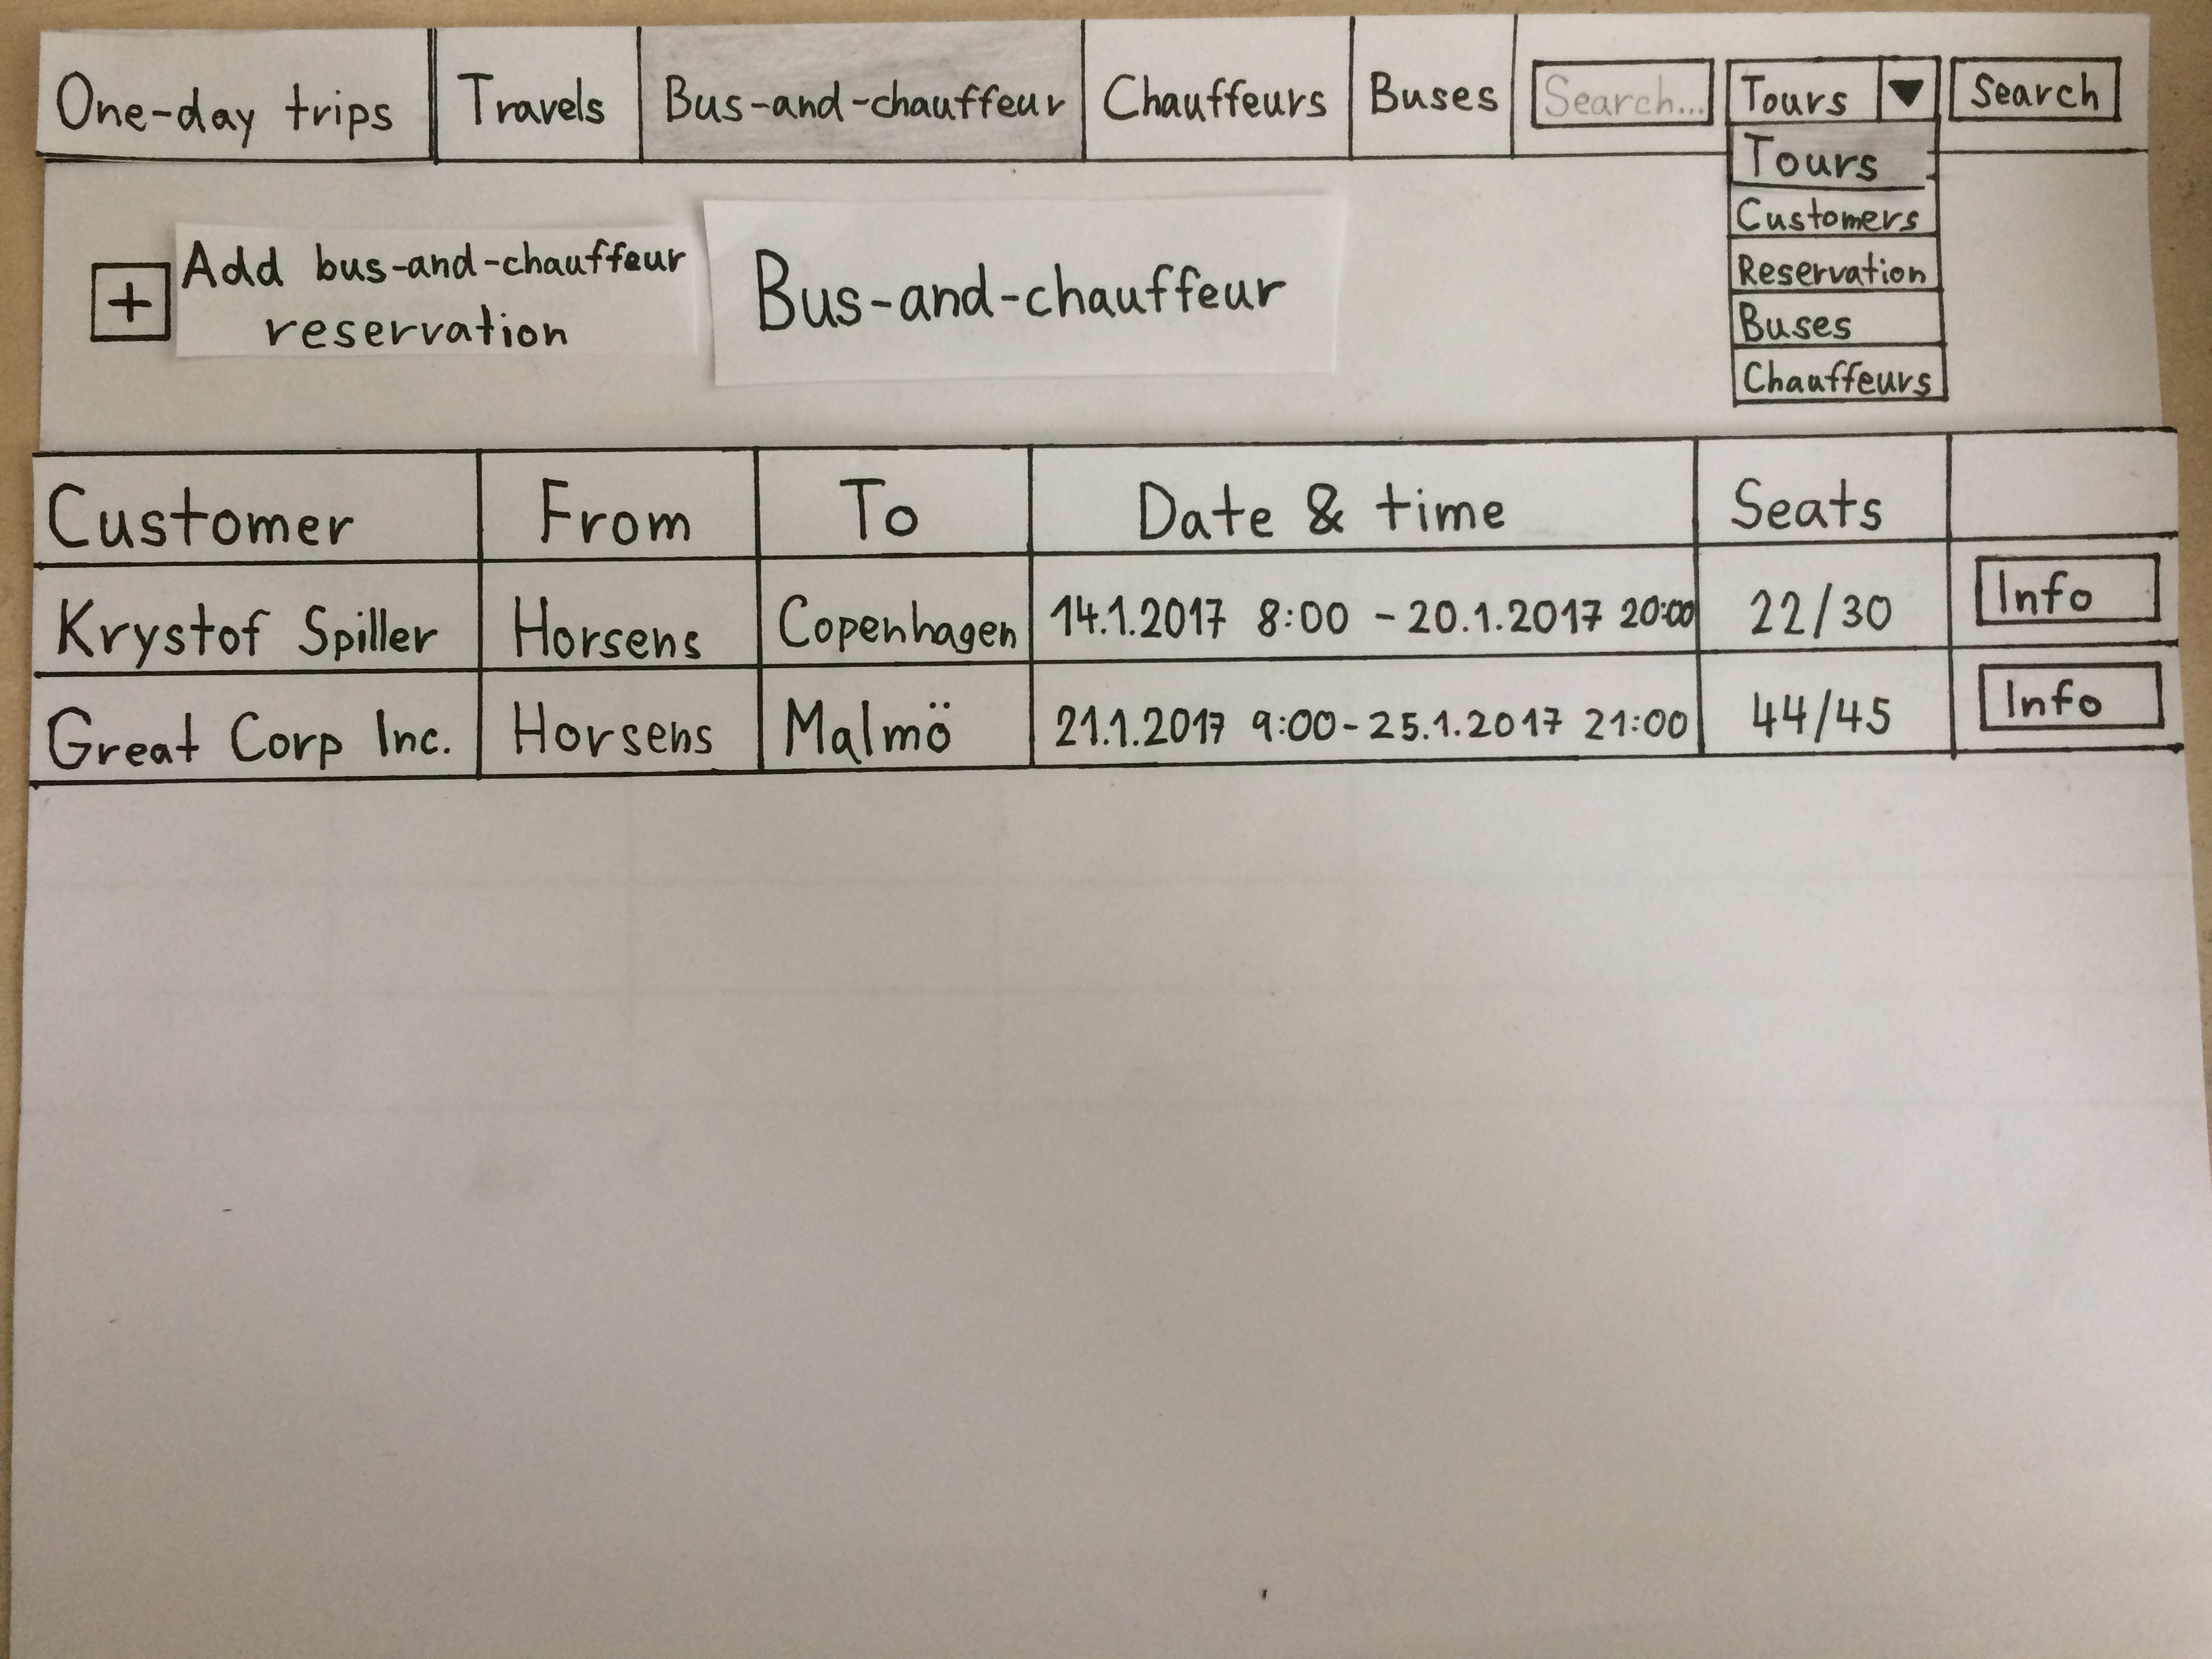 One-day trips Travels Bus-and-chauffeur Chauffeurs Buses Search... Tours ▼ Search
Tours
Customers
Reservation
Buses
Chauffeurs
+ Add bus-and-chauffeur
reservation
Bus-and-chauffeur
Customer From To Date & time Seats
Krystof Spiller Horsens Copenhagen 14.1.2017 8:00 - 20.1.2017 20:00 22/30 Info
Great Corp Inc. Horsens Malmö 21.1.2017 9:00-25.1.2017 21:00 44/45 Info